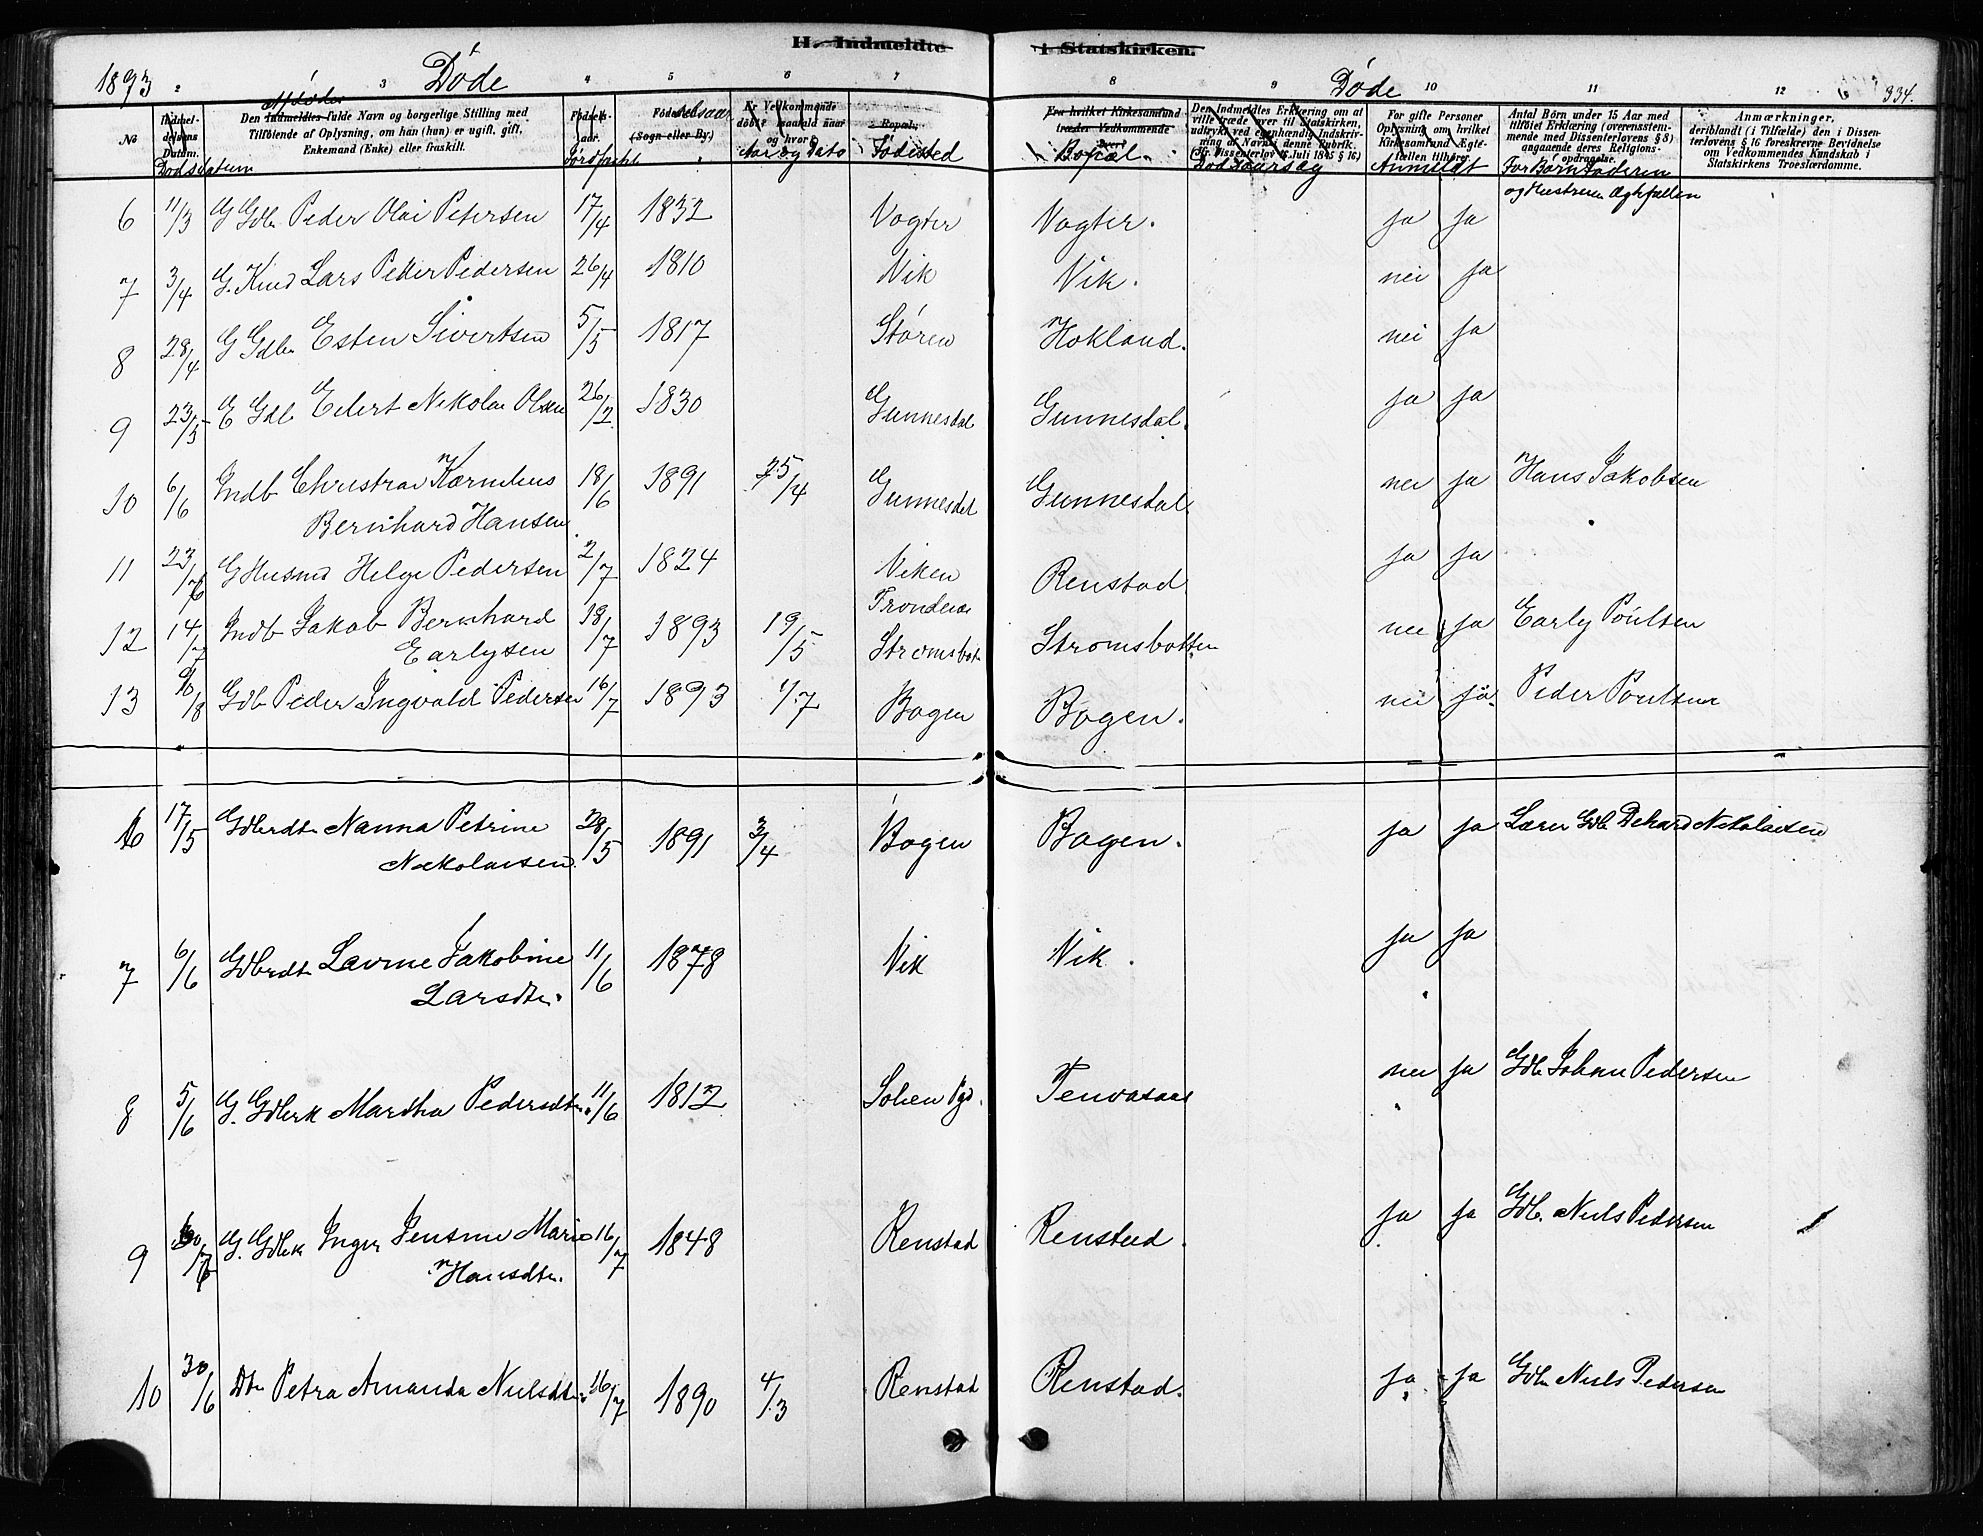 H. Indmeldte i Statskirken.
1893 Døde Døde 334.
2 3 4 5 6 7 8 9 10 11 12
No
Indmeldelsens Datum.
Dødsdatum
Afdødes
Den Indmeldtes fulde Navn og borgerlige Stilling med
Tilføiende af Oplysning, om han (hun) er ugift, gift,
Enkemand (Enke) eller fraskilt.
Fødselsaar.
Jordfæstet
Fødselsaar
(Sogn eller By.)
Er Vedkommende
døbt? isaafald naar
og hvor?
Aar og Dato
Bopæl.
Fødested
Fra hvilket Kirkesamfund
træder Vedkommende
over?
Bopæl.
Den Indmeldtes Erklæring om at
ville træde over til Statskirken,
udtrykt ved egenhændig Indskrivning
af Navn i denne Rubrik.
(Jfr. Dissenterlov 16 Juli 1845 § 16.)
Dødsaarsag
For gifte Personer
Oplysning om hvilket
Kirkesamfund Ægtefællen
tilhører.
Anmeldt
Antal Børn under 15 Aar med
tilføiet Erklæring (overensstemmende
med Dissenterlovens § 8)
angaaende deres Religionsopdragelse.
For Børn Faderen
og Hustruen Ægtefællen
Anmærkninger,
deriblandt (i Tilfælde) den i Dissenterlovens
§ 16 foreskrevne Bevidnelse
om Vedkommendes Kundskab i
Statskirkens Troeslærdomme.
6 11/3 G Gdbr Peder Olai Petersen 17/4 1832 Vogter Vogter. ja ja
7 3/4 G. Kaard Lars Peder Pedersen 26/4 1810 Vik Vik. nei ja
8 28/4 G Gdbr Esten Sivertsen 5/5 1817 Støren Hokland. nei ja
9 23/5 E Gdb Eilert Nikolai Olsen 26/2 1830 Gunnesdal Gunnesdal. ja ja
10 6/6 Indb Christian Kornelius 18/6 1891 25/4 Gunnesdal Gunnesdal nei ja Hans Jakobsen
Bernhard Hansen.
11 23/6 G Husmd Helge Pedersen 2/7 1824 Viken Renstad ja ja
Trondenæs
12 14/7 Indb Jakob Bernhard 18/7 1893 19/5 Strømsbot Strømsbotten nei ja Early Poulsen
Earlysen
13 /8 Gdb Peder Ingvald Pedersen 16/7 1893 1/7 Bogen Bogen. nei ja. Peder Poulsen
6 17/5 Gdbrdtr Nanna Petrine 28/5 1891 3/4 Bogen Bogen. ja ja Lærer Gdb Nikolaisen
Nikolaisen
7 6/6 Gdbrdtr Lavine Jakobine 11/6 1878 Vik Vik. ja ja
Larsdtr.
8 5/6 G. Gdbrk Martha Pedersdtr. 11/6 1812 Tenvasaas nei ja Gdb Johan Pedersen
9 30/6 G. Gdbrk Inger Jensine Marie 16/7 1848 Renstad Renstad. ja ja Gdb. Niels Pedersen
Hansdtr.
10 30/6 Dtr Petra Amanda Nielsdtr. 16/7 1890 4/3 Renstad Renstad. ja ja Gdbr Niels Pedersen